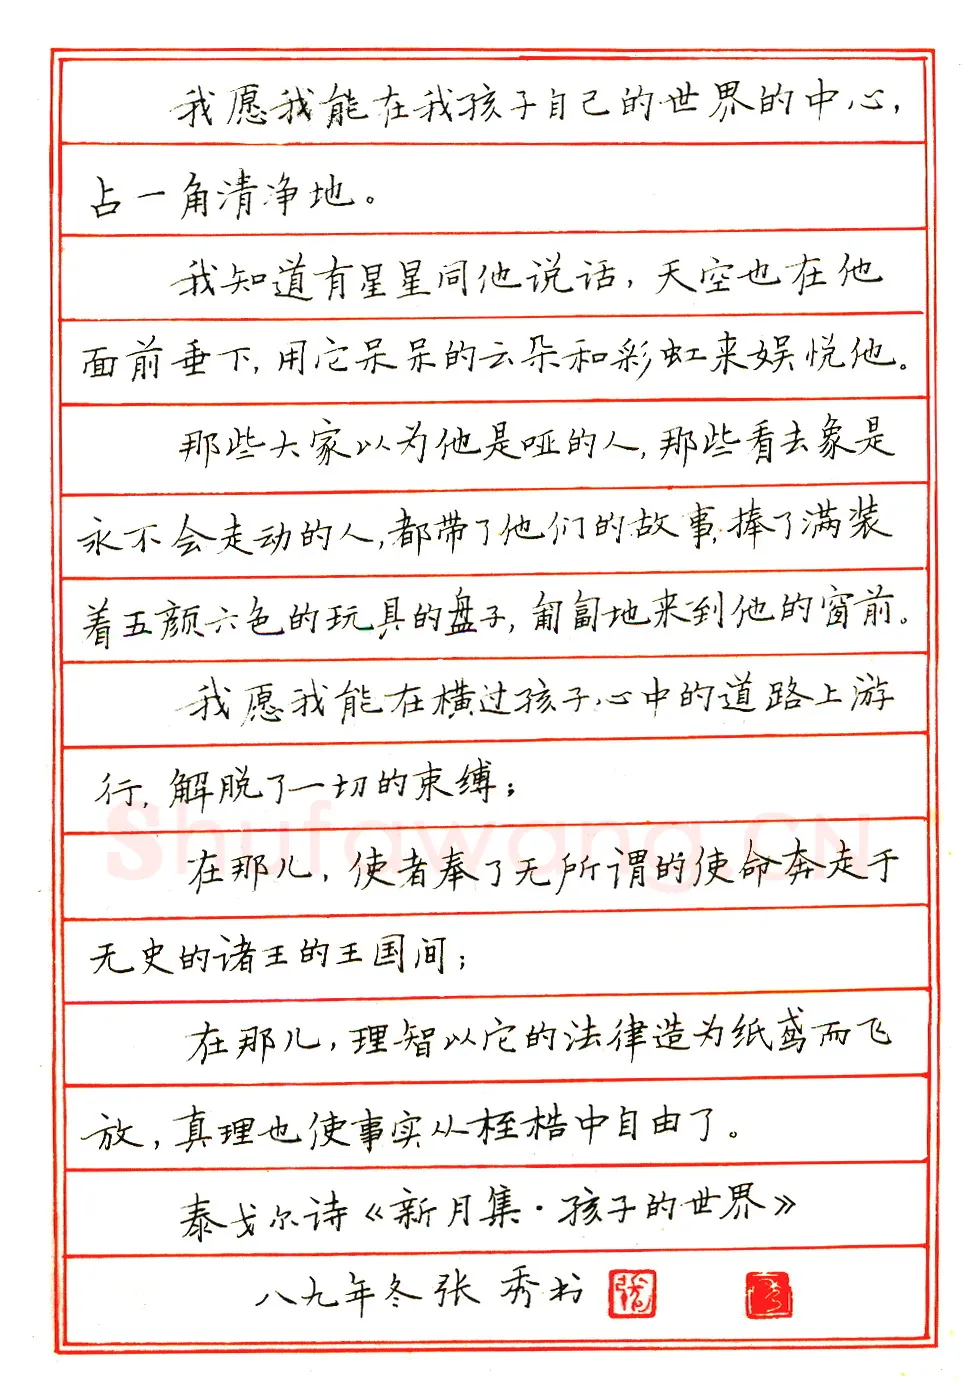 我愿我能在我孩子自己的世界的中心，
占一角清净地。
我知道有星星同他说话，天空也在他
面前垂下，用它呆呆的云朵和彩虹来娱悦他。
那些大家以为他是哑的人，那些看去象是
永不会走动的人，都带了他们的故事，捧了满装
着五颜六色的玩具的盘子，匍匐地来到他的窗前。
我愿我能在横过孩子心中的道路上游
行，解脱了一切的束缚；
在那儿，使者奉了无所谓的使命奔走于
无史的诸王的王国间；
在那儿，理智以它的法律造为纸鸢而飞
放，真理也使事实从桎梏中自由了。
泰戈尔诗《新月集·孩子的世界》
八九年冬张秀书
Shufawang.CN